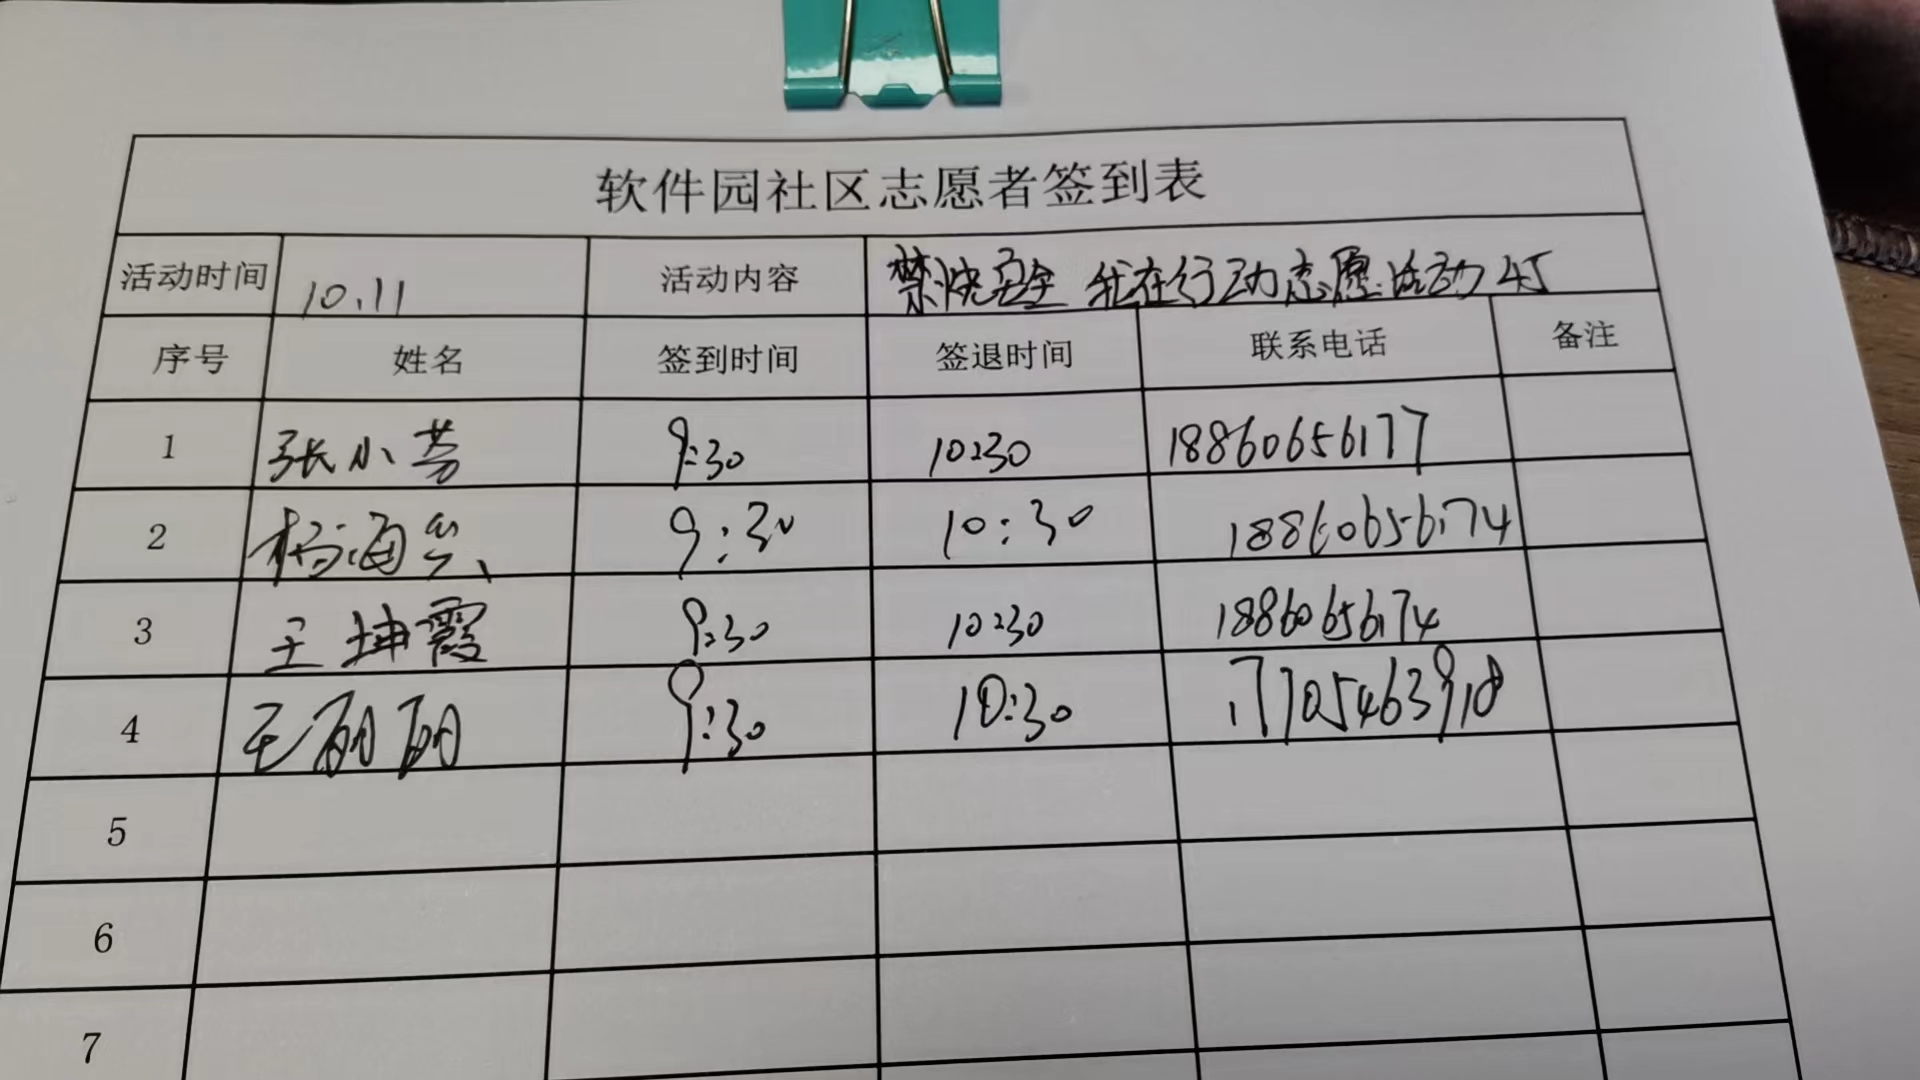 软件园社区志愿者签到表
活动时间 10.11 活动内容 禁 安全 我在行动志愿活动 4J
序号 姓名 签到时间 签退时间 联系电话 备注
1 张小芳 9:30 10:30 18860656177
2 杨海 9:30 10:30 18860656174
3 王坤霞 9:30 10:30 18860656174
4 王丽丽 9:30 10:30 17705463918
5
6
7